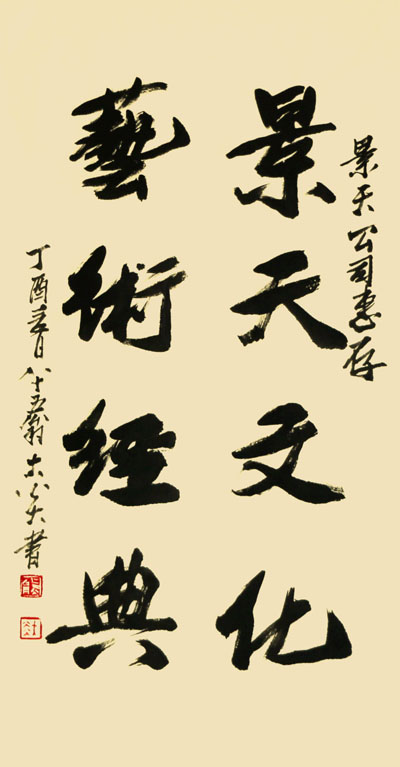 景天公司惠存
景天文化
藝術經典
丁酉 八十五翁 書